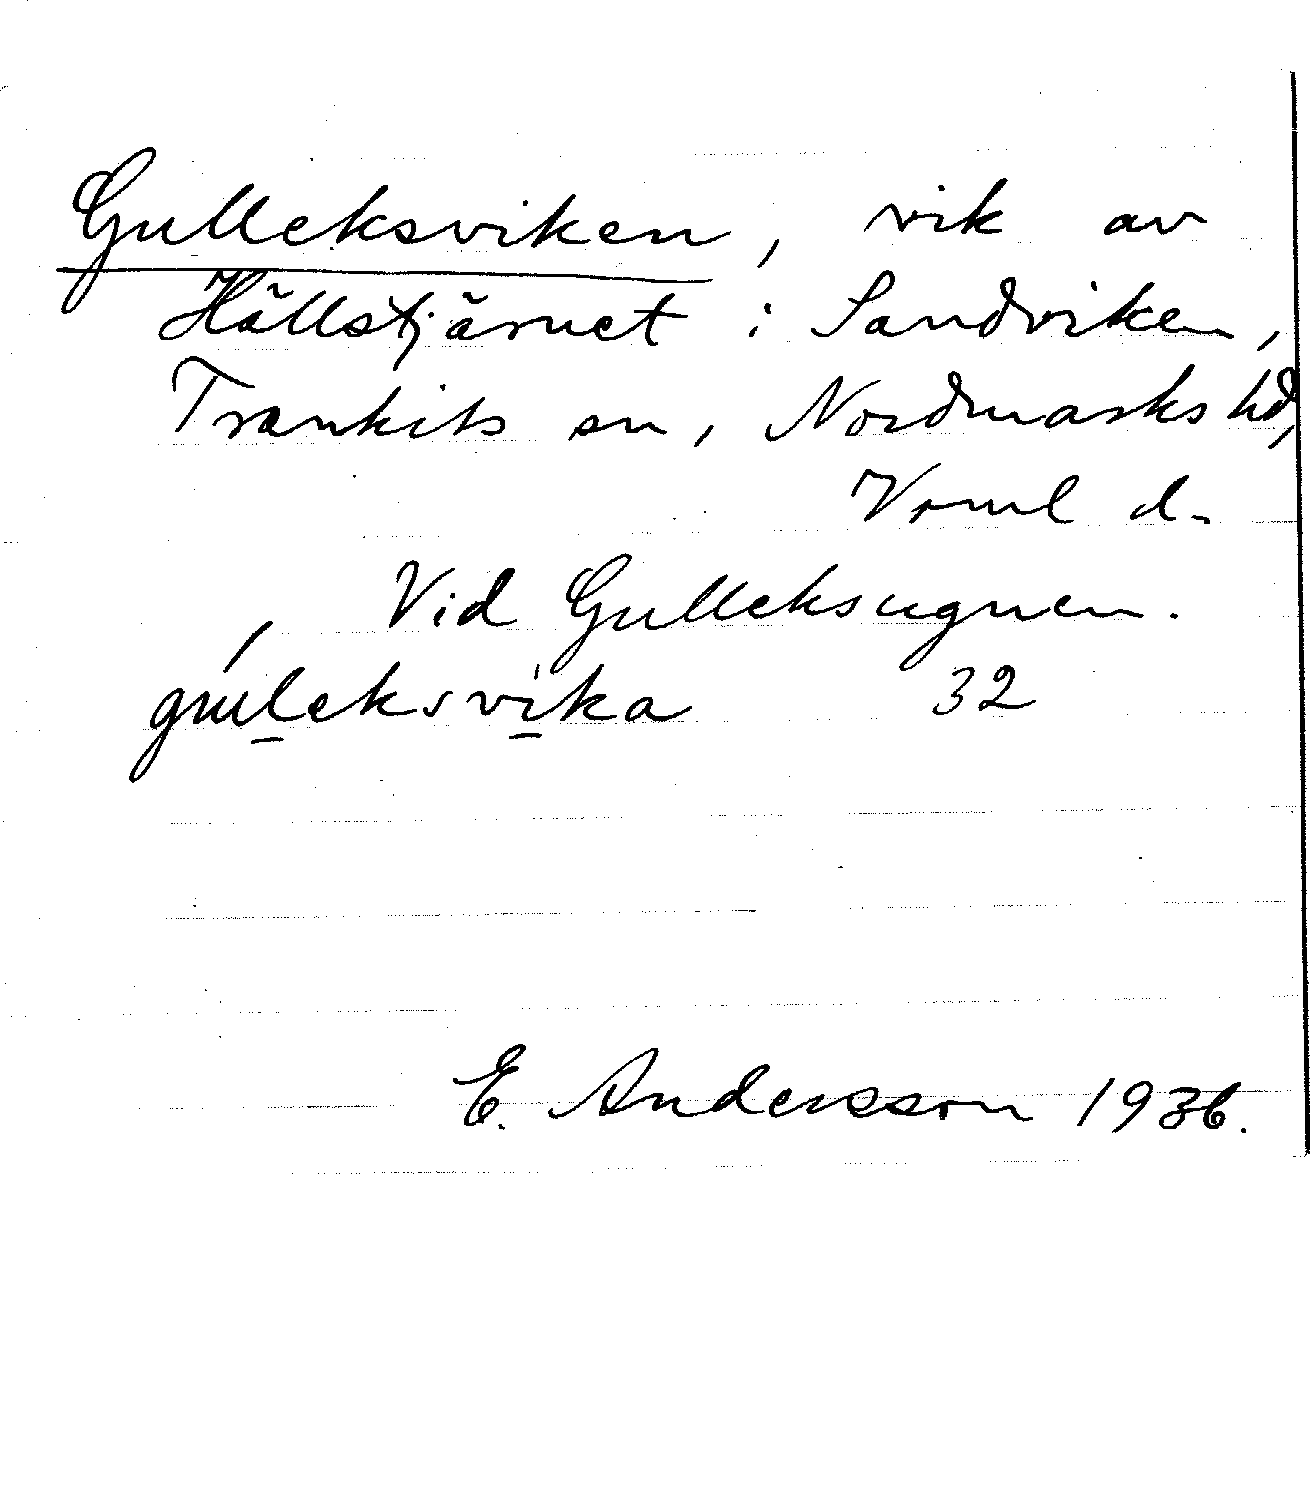 Gulleksviken, vik av
Hällstjärnet i Sandviken,
Trankils sn, Nordmarks hd,
Vrml d.
Vid Gulleksugnen.
guleksvika 32
E. Andersson 1936.